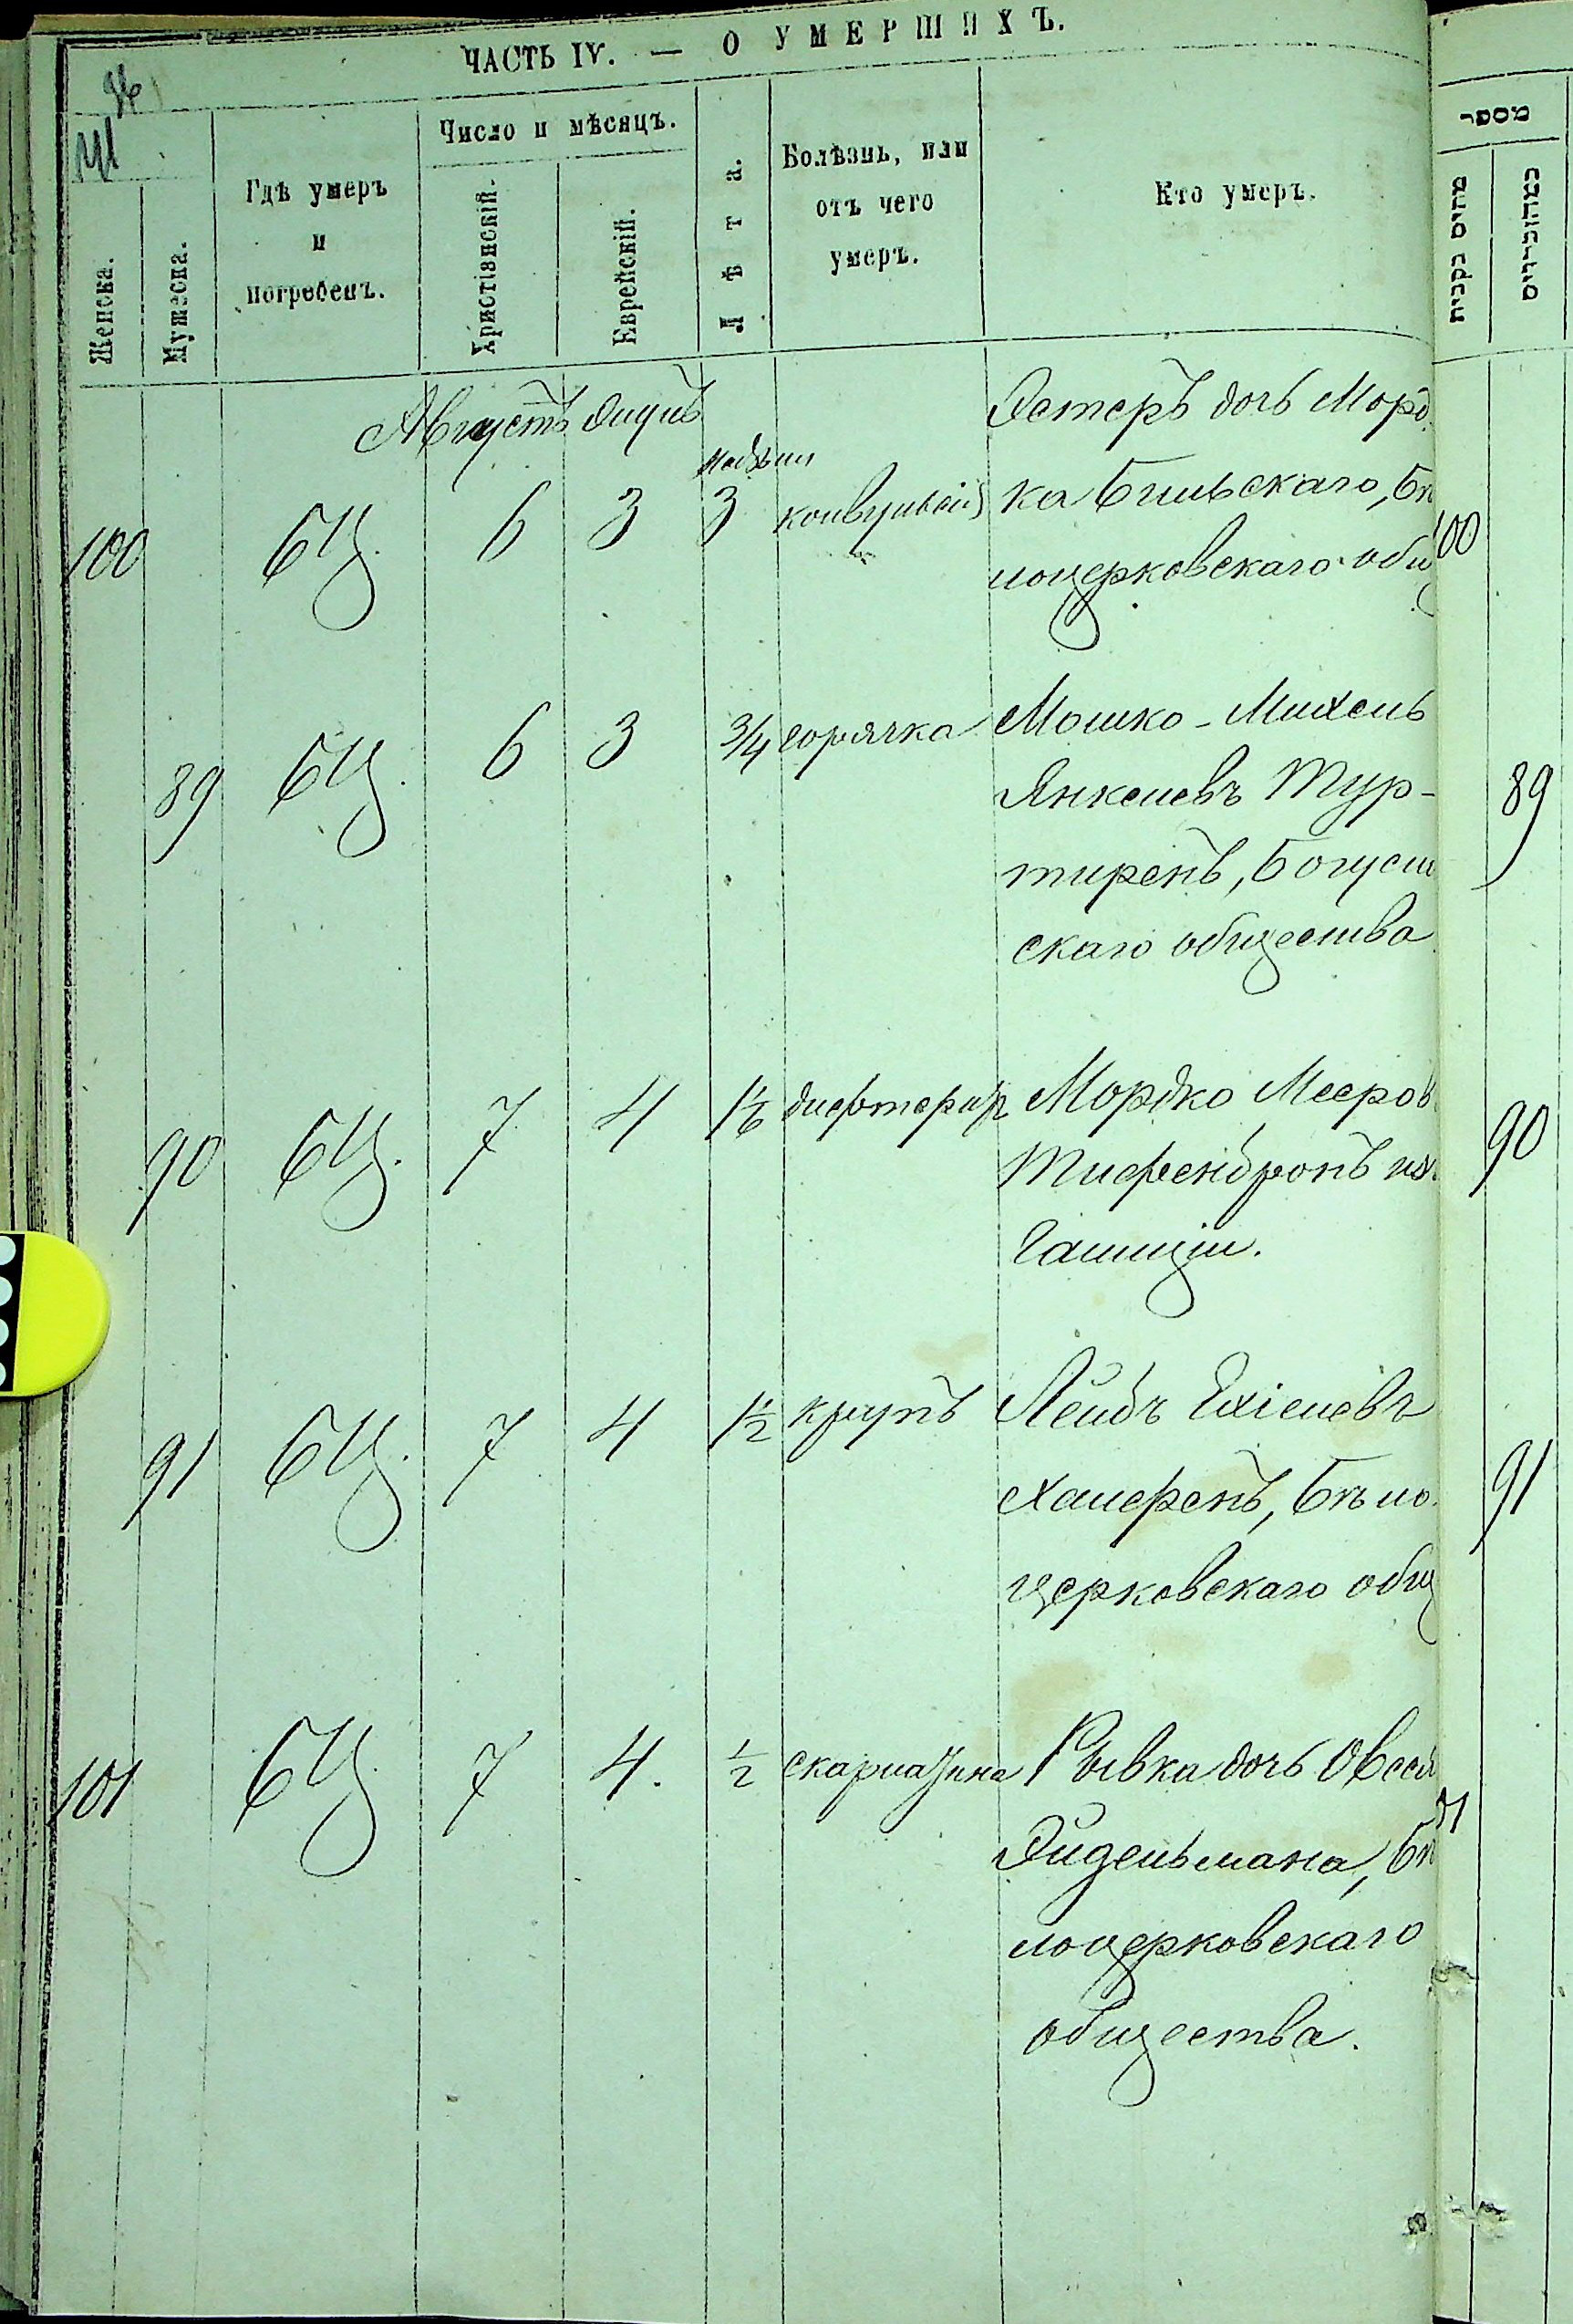 ЧАСТЬ IV. — О УМЕРШИХЪ.
Женска.
Мужеска.
Гдѣ умеръ
и
погребенъ.
Число и мѣсяцъ.
Христіанскій.
Еврейскій.
Лѣта.
Болѣзнь, или
отъ чего
умеръ.
Кто умеръ.
מספר
Августъ Элулъ
100 БЦ. 6 3 3 недѣли конвульсій Эстеръ дочь Морд
ка Бильскаго, Бѣ
лоцерковскаго общ
100
89 БЦ. 6 3 3/4 горячка Мошко-Михель
Янкелевъ Тур-
тиренъ, Богусл
скаго общества
89
90 БЦ. 7 4 1/6 дифтеритъ Мордко Мееровъ
Тифенбронъ из
Галиціи.
90
91 БЦ. 7 4 1 1/2 крупъ Лейбъ Ехіелевъ
Халеренъ, Бѣло
церковскаго общ
91
101 БЦ. 7 4. 1/2 скарлатина Рывка дочь Овсея
Эйдельмана, Бѣ
лоцерковскаго
общества.